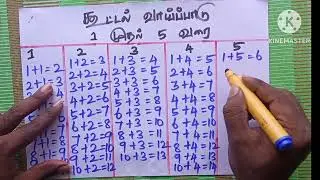 கூட்டல் வாய்ப்பாடு
1 முதல் 5 வரை
KINEMASTER
1 2 3 4 5
1+1=2 1+2=3 1+3=4 1+4=5 1+5=6
2+1=3 2+2=4 2+3=5 2+4=6
3+2=5 3+3=6 3+4=7
4+2=6 4+3=7 4+4=8
5+2=7 5+3=8 5+4=9
6+2=8 6+3=9 6+4=10
7+2=9 7+3=10 7+4=11
8+2=10 8+3=11 8+4=12
9+2=11 9+3=12 9+4=13
10+2=12 10+3=13 10+4=14